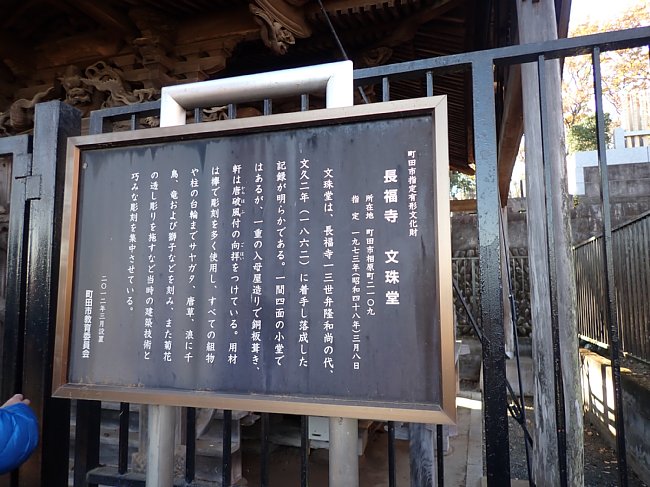 町田市指定有形文化財
長福寺　文珠堂
所在地　町田市相原町二一〇九
指　定　一九七三年(昭和四十八年)三月八日
文珠堂は、長福寺一三世弁隆和尚の代、
文久二年(一八六二)に着手し落成した
記録が明らかである。一間四面の小堂で
はあるが、一重の入母屋造りで銅板葺き、
軒は唐破風付の向拝をつけている。用材
は欅で彫刻を多く使用し、すべての組物
や柱の台輪までサヤガタ、唐草、浪に千
鳥、竜および獅子などを刻み、また菊花
の透し彫りを施すなど当時の建築技術と
巧みな彫刻を集中させている。
二〇一二年三月設置
町田市教育委員会